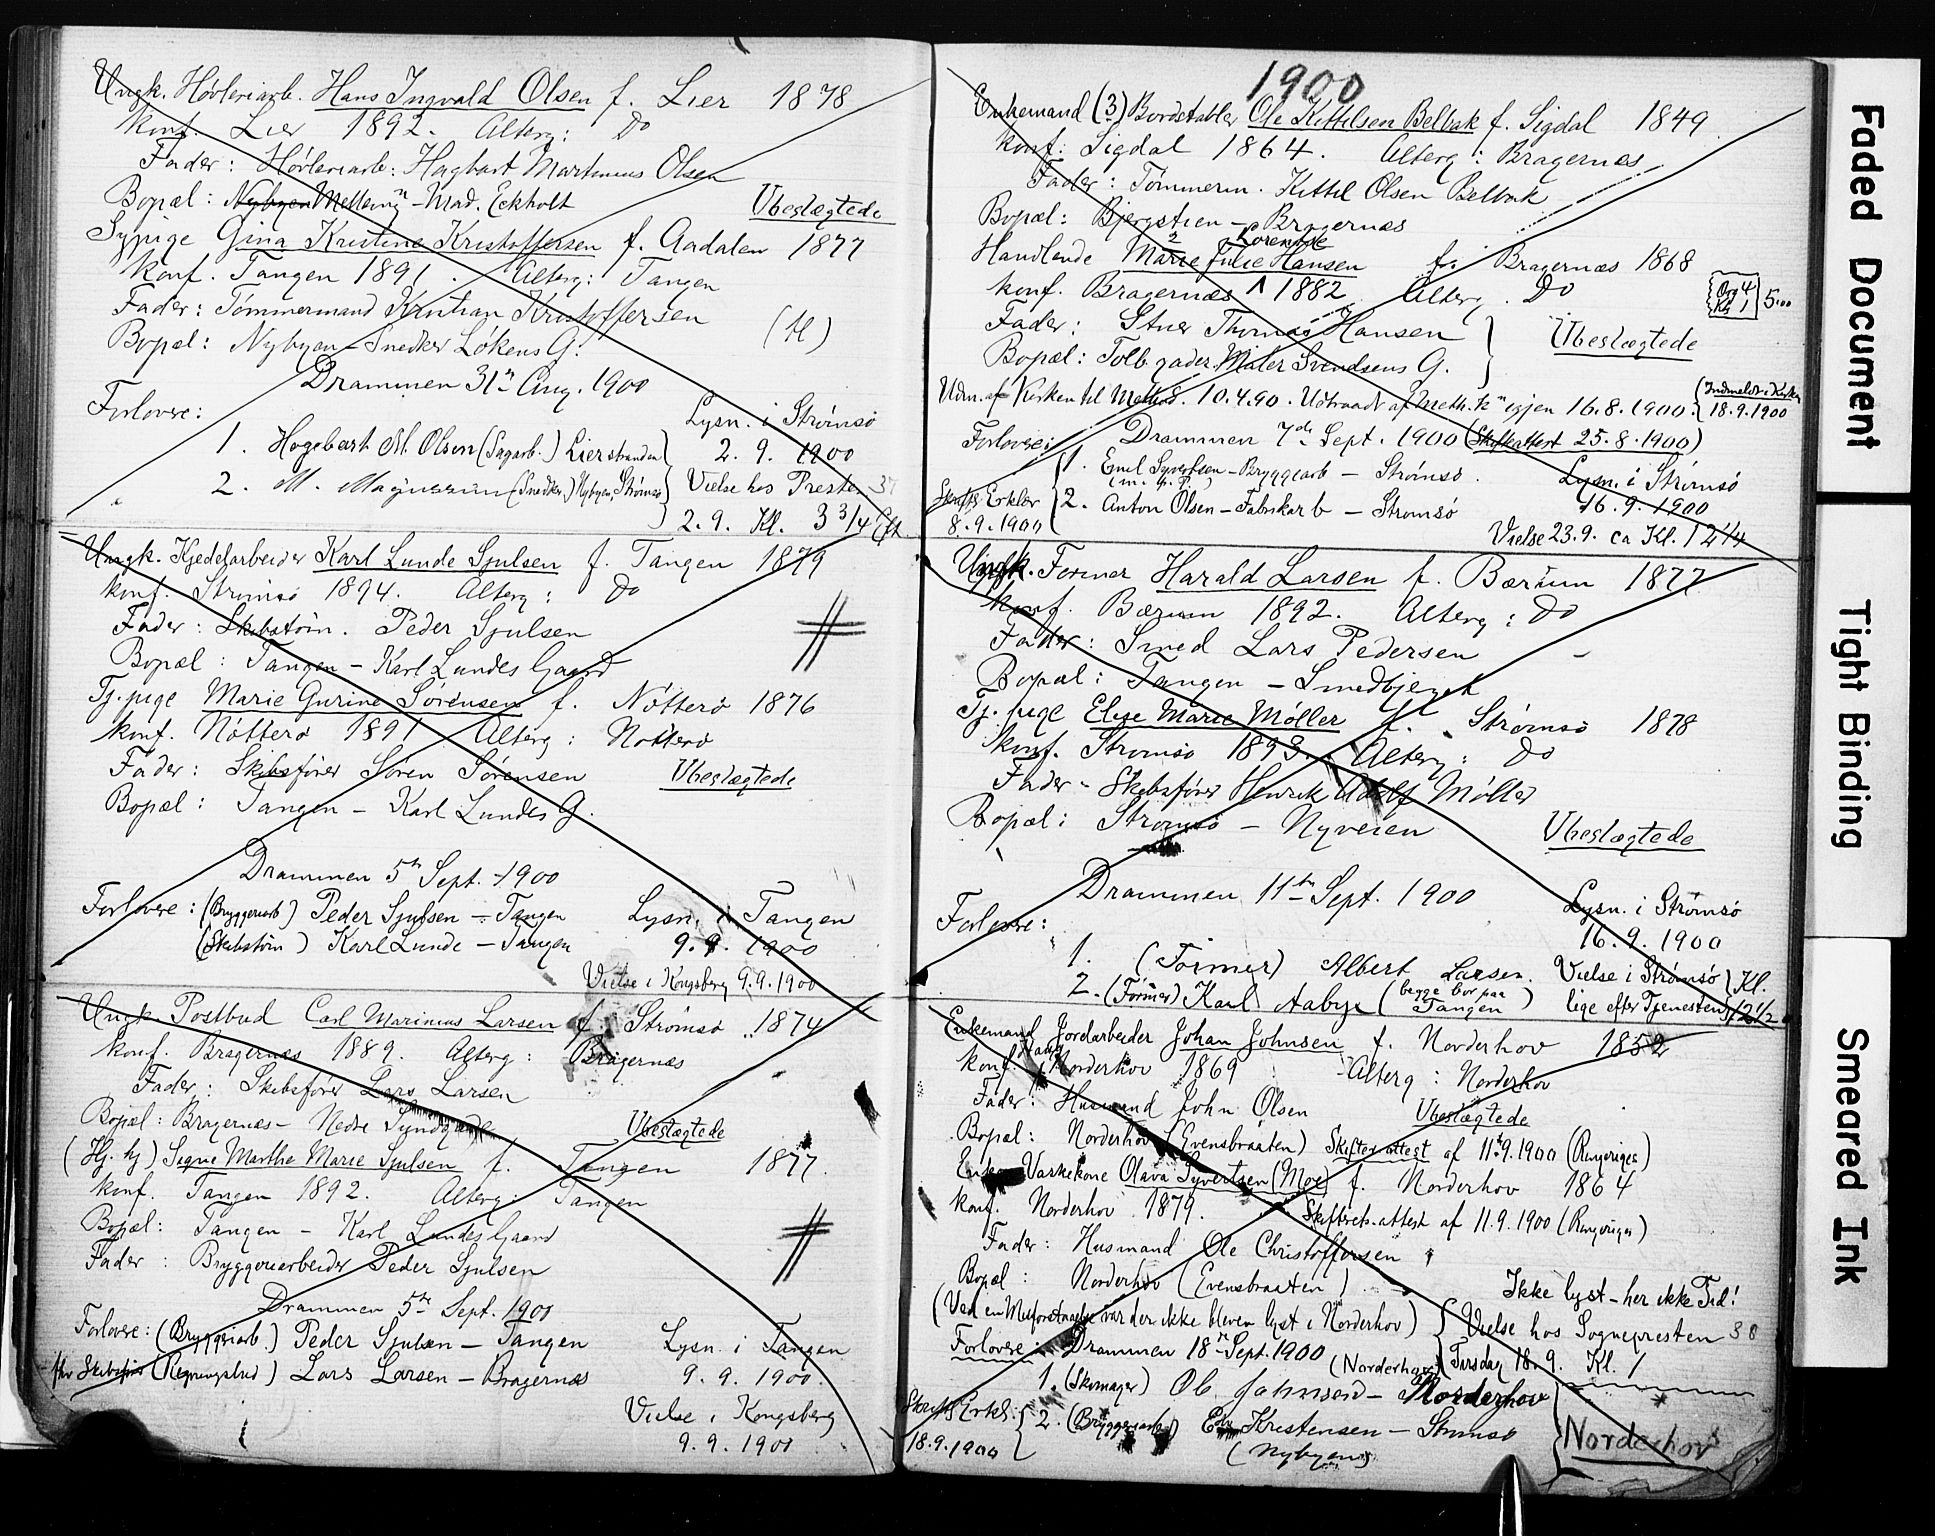 Ungk. Høvleriarb. Hans Ingvald Olsen f. Lier 1878
konf. Lier 1892. Alterg: Do
Fader: Høvleriarb: Hagbart Martinius Olsen
Bopæl: Nybyen Mad. Eckholt
Ubeslægtede
Sypige Gina Kristine Kristoffersen f. Aadalen 1877
konf. Tangen 1891. Alterg: Tangen
Fader: Tømmermand Kristian Kristoffersen
Bopæl: Nybyen - Snedker Løkens G.
Drammen 31te Aug. 1900
Forlovere:
Lysn. i Strømsø
1. Hagebart M. Olsen (Sagarb.) Lierstranden
2. 9. 1900
2. M. Magnussen (Snedker,) Nybyen, Strømsø
Vielse hos Presten 37
2.9. Kl. 3 3/4 Eft.
Ungk. Kjedelarbeider Karl Lunde Sjulsen f. Tangen 1879
konf. Strømsø 1894. Alterg: Do
Fader: Skibstøm. Peder Sjulsen
Bopæl: Tangen - Karl Lundes Gaard
Tj. pige Marie Gurine Sørensen f. Nøtterø 1876
konf. Nøtterø 1891 Alterg: Nøtterø
Fader: Skibsfører Søren Sørensen
Ubeslægtede
Bopæl: Tangen - Karl Lundes G.
Drammen 5te Sept. 1900
Forlovere: (Bryggeriarb) Peder Sjulsen - Tangen
Lysn. i Tangen
(Skibstøm) Karl Lunde - Tangen
9. 9. 1900
Vielse i Kongsberg 9.9.1900
Ungk. Postbud Carl Marinius Larsen f. Strømsø 1874
konf. Bragernæs 1889. Alterg: Bragernæs
Fader: Skibsfører Lars Larsen
Bopæl: Bragernæs - Nedre
Ubeslægtede
(Hj. hj) Signe Marthe Marie Sjulsen f. Tangen 1877.
konf. Tangen 1892. Alterg: Tangen
Bopæl: Tangen - Karl Lundes Gaard
Fader: Bryggeriarbeider Peder Sjulsen
Drammen 5te Sept. 1900
Forlovere: (Bryggeriarb.) Peder Sjulsen - Tangen
Lysn. i Tangen
(Regningsbud) Lars Larsen - Bragernæs
9. 9. 1900.
Vielse i Kongsberg
9. 9. 1900
1900
Enkemand (3) Bordstabler Ole Kittilsen Belbak f. Sigdal 1849
konf: Sigdal 1864. Alterg: Bragernæs
Fader: Tømmerm. Kittil Olsen Belbak
Bopæl: Bjergstien - Bragernæs
Lorentse
Handlende Marie Julie Hansen f. Bragernæs 1868
konf. Bragernæs 1882 Alterg. Do
Org 4
Kl 1
5.00
Fader: Stuer Thomas Hansen
Ubeslægtede
Bopæl: Tolbgaden Maler Svendsens G.
Udm. af Kirken til Method. 10.4.90. Udtraadt af Meth. k igjen 16.8.1900.
(Indmeldt i Kirken 18.9.1900
Forlovere: Drammen 7de Sept. 1900 (Skifteattest 25.8.1900)
1. Emil Syvertsen - Bryggearb - Strømsø.
Lysn. i Strømsø
Skriftl. Erklær
8.9.1900
2. Anton Olsen - Fabrikarb - Strømsø
16. 9. 1900
Vielse 23.9. ca Kl. 12 1/4
Ungk. Former Harald Larsen f. Bærum 1877
konf. Bærum 1892. Alterg: Do
Fader: Smed Lars Pedersen
Bopæl: Tangen - Smedbjerget
Tj. pige Elise Marie Møller f. Strømsø 1878
konf. Strømsø 1893. Alterg: Do
Fader - Skibsfører Henrik Adolf Møller
Bopæl: Strømsø - Nyveien
Ubeslægtede
Drammen 11te Sept. 1900
Forlovere:
Lysn. i Strømsø
16. 9. 1900
1. (Former) Albert Larsen.
Vielse i Strømsø Kl.
2. (Former) Karl Aabye (begge bor paa Tangen)
lige efter Tjenesten 12 1/2
Enkemand Jordarbeider Johan Johnsen f. Norderhov 1852
konf. Norderhov 1869 Alterg: Norderhov
Fader: Husmand John Olsen
Ubeslægtede
Bopæl: Norderhov (Evensbraaten) Skifteattest af 11.9.1900 (Ringerige)
Enke Vaskekone Olava Syvertsen (Moe) f. Norderhov 1864
konf. Norderhov 1879. Skifterets-attest af 11.9.1900 (Ringerige)
Fader: Husmand Ole Christoffersen
Bopæl: Norderhov (Evensbraaten)
Ikke lyst - her ikke Tid!
(Ved en Misforstaaelse var der ikke bleven lyst i Norderhov)
Vielse hos Sognepresten 38
Forlovere: Drammen 18te Sept. 1900
Tirsdag 18.9. Kl. 1
(Norderhov)
1. (Skomager) Ole Johnsen - Norderhov
Skriftl. Erkl.
18.9.1900
2. (Bryggeriarb) Edv Kristensen - Strømsø
(Nybyen)
Norderhov
Faded Document
Tight Binding
Smeared Ink